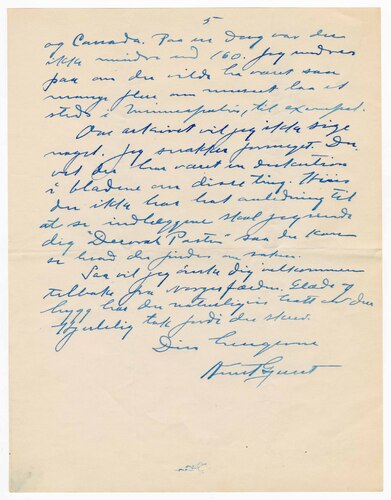 5
og Canada. Paa en dag var der
ikke mindre end 160. Jeg undres
paa om der vilde ha været saa
mange flere om museet laa et
sted i Minneapolis, til exempel.
Om arkivet vil jeg ikke sige
noget. Jeg snakker formeget. Du
vet der har været en diskution
i bladene om disse ting. Hvis
du ikke har hat anledning til
at se indlæggene skal jeg sende
dig "Decorah Posten" saa du kan
se hvad du finder om saken.
Saa vil jeg ønske dig velkommen
tilbake fra Norgesfærden. Glæde og
hygg har du naturligvis hatt av den
Hjertelig tak fordi du skrev.
Din hengivne
Knut Gjerset